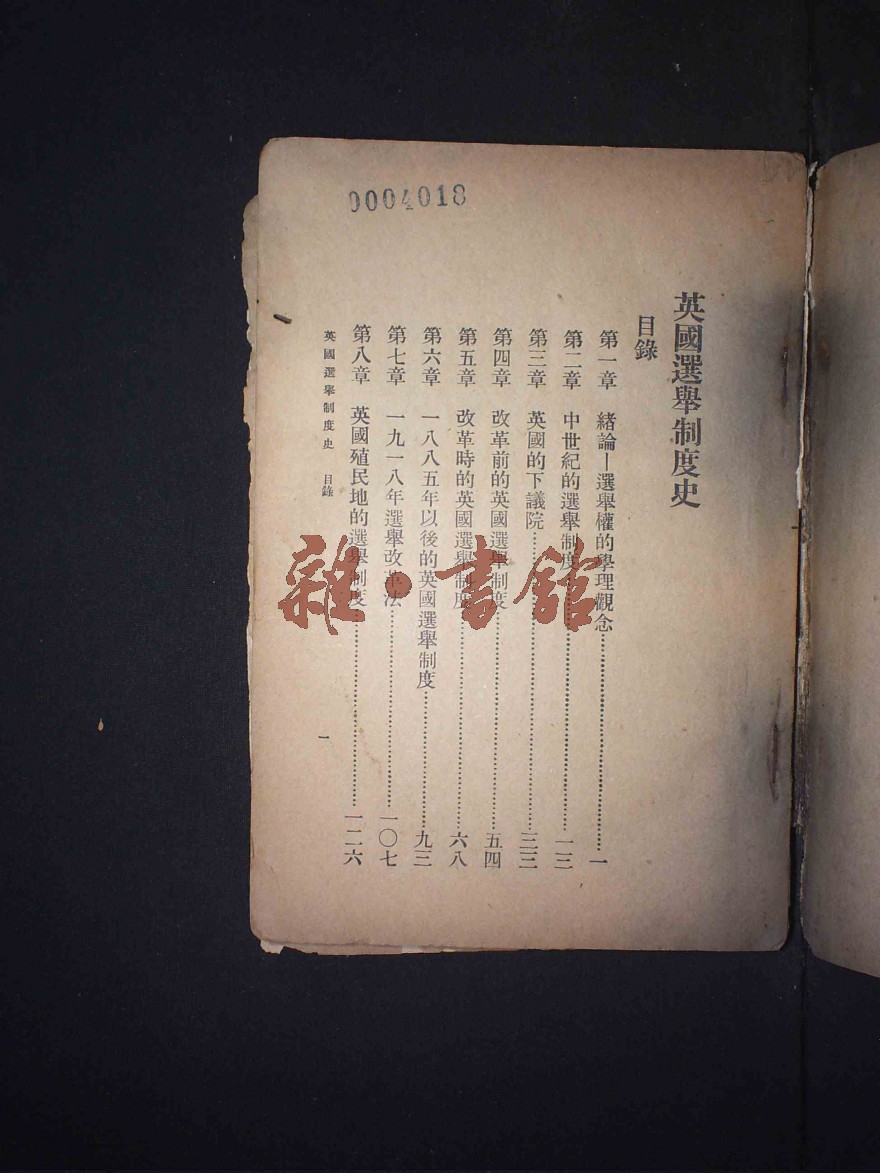 0004018
英國選舉制度史
目錄
第一章 緒論—選舉權的學理觀念……一
第二章 中世紀的選舉制度……一三
第三章 英國的下議院……三三
第四章 改革前的英國選舉制度……五四
第五章 改革時的英國選舉制度……六八
第六章 一八八五年以後的英國選舉制度……九三
第七章 一九一八年選舉改革法……一〇七
第八章 英國殖民地的選舉制度……一二六
英國選舉制度史 目錄
一
雜·書館